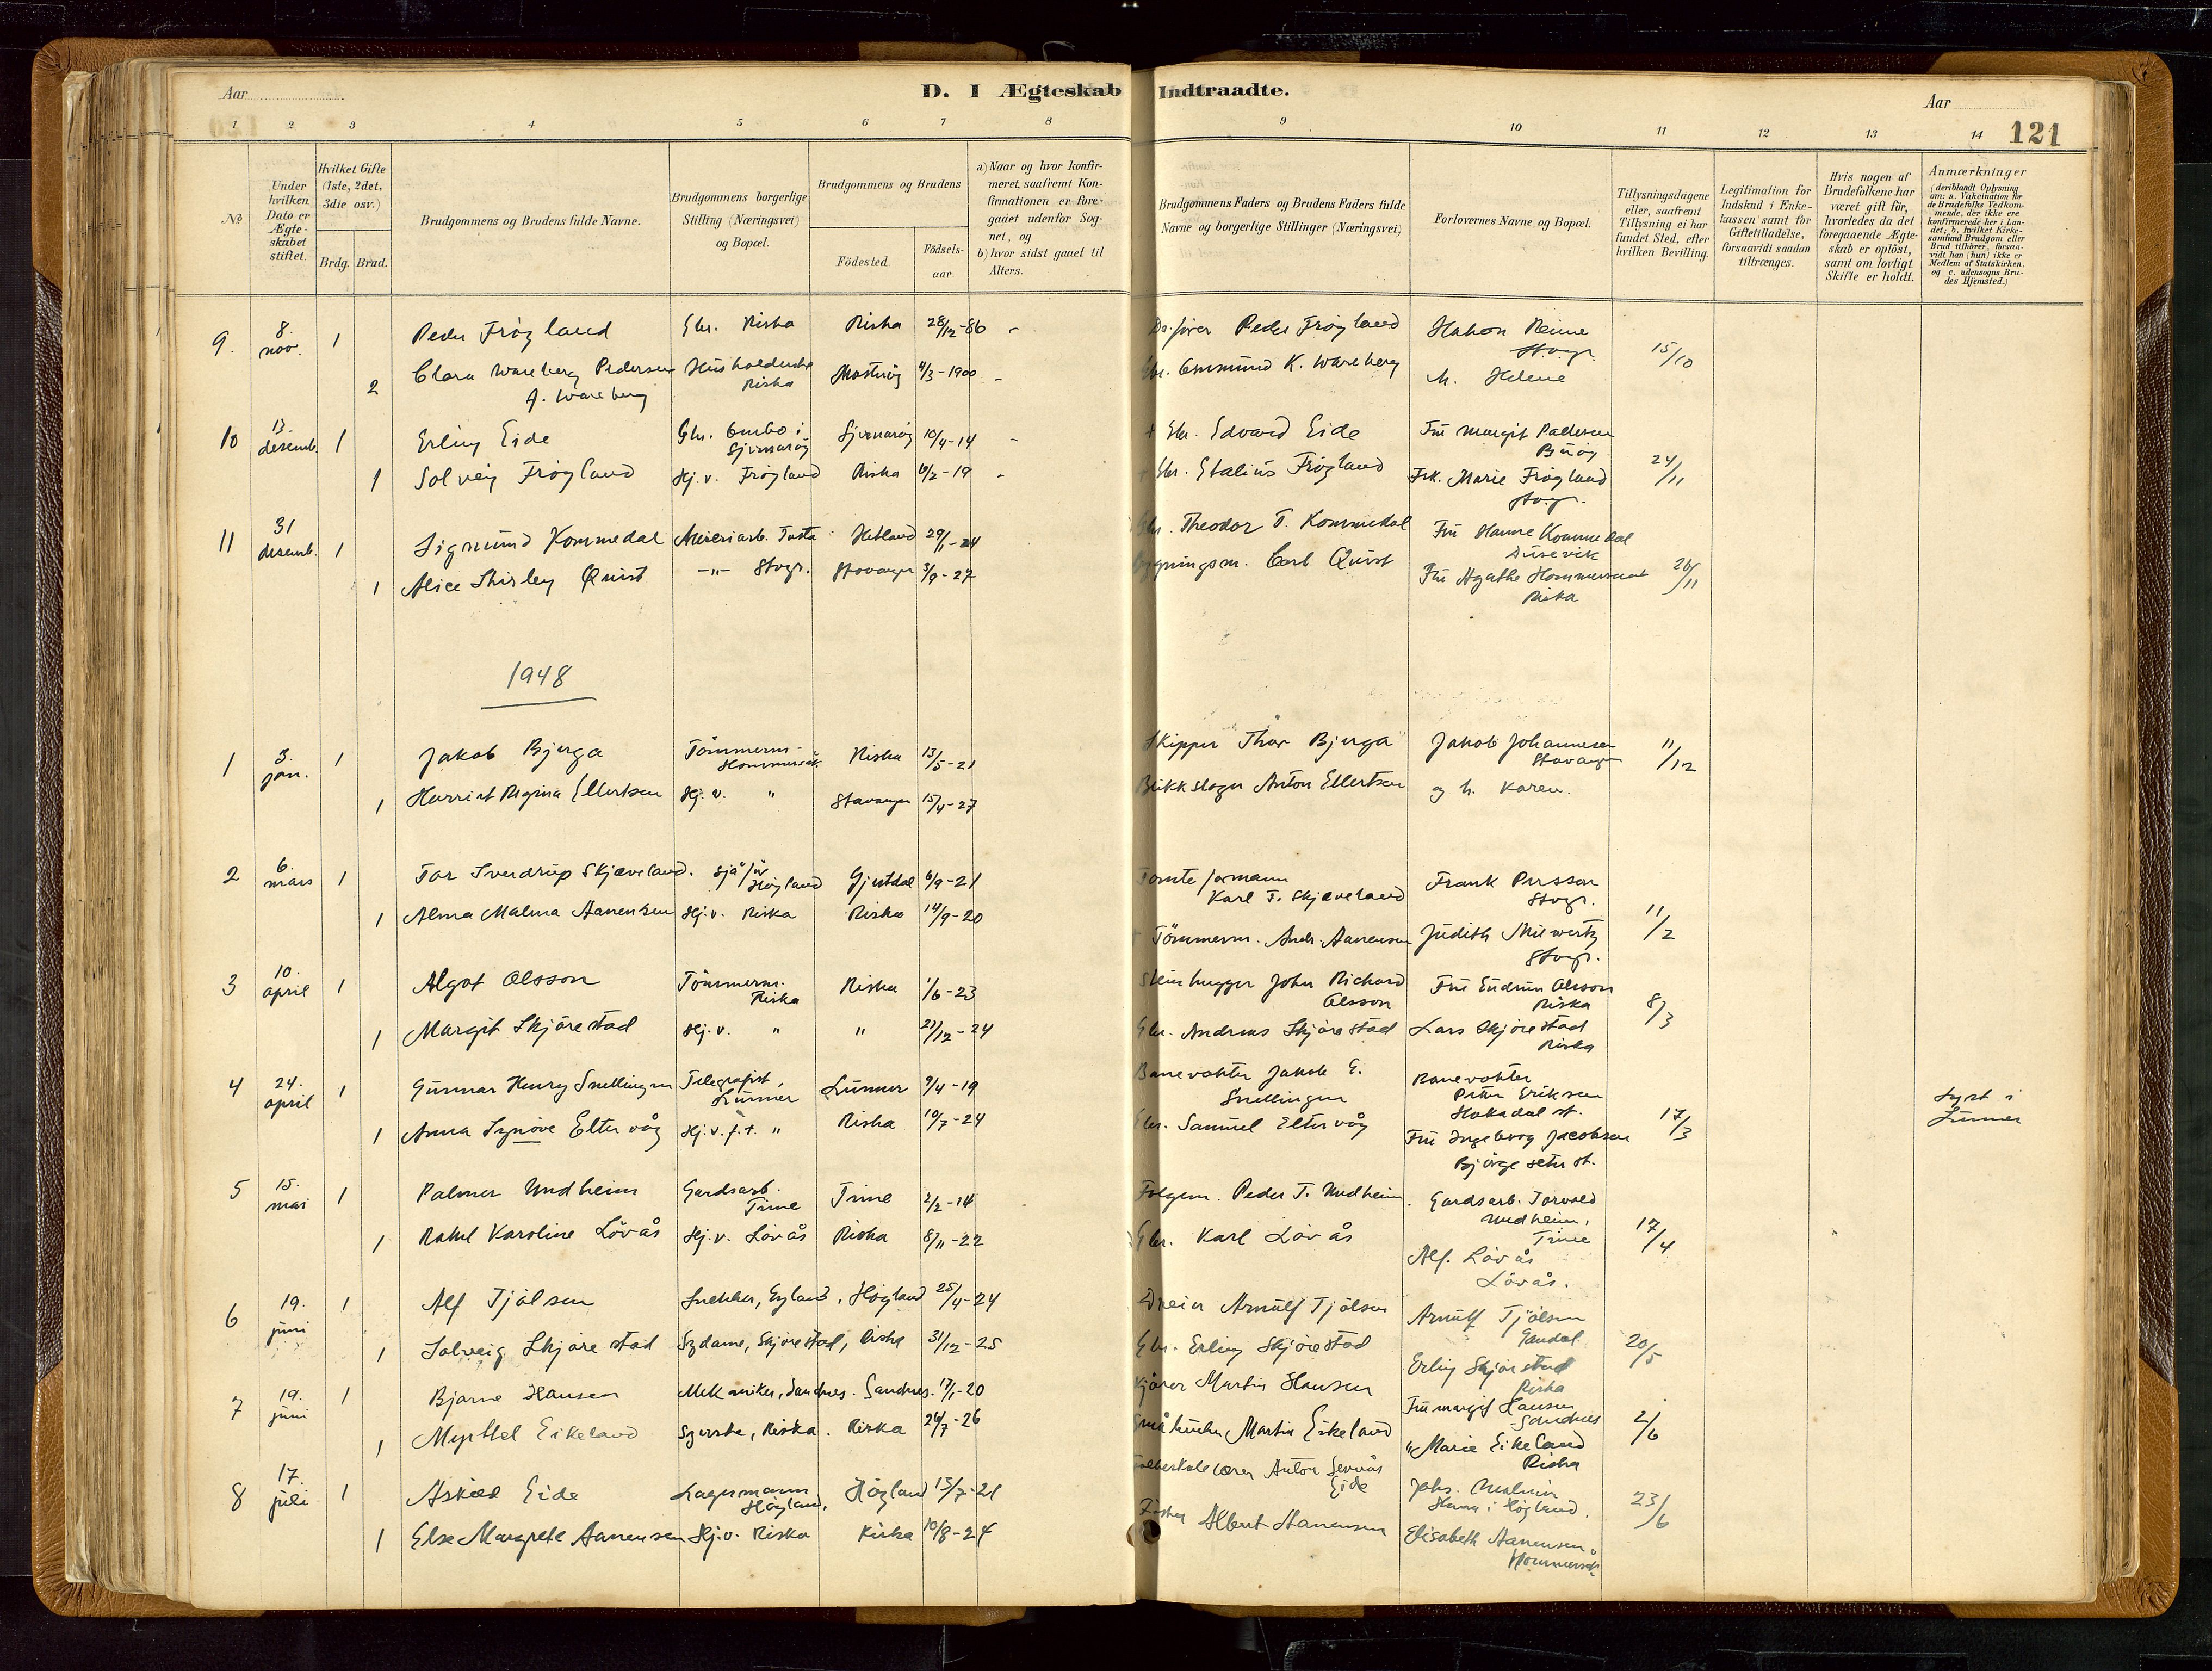 Aar
D. I Ægteskab Indtraadte.
Aar
121
1 2 3 4 5 6 7 8 9 10 11 12 13 14
No
Under hvilken Dato er Ægteskabet stiftet.
Hvilket Gifte (1ste, 2det, 3die osv.)
Brdg. Brud.
Brudgommens og Brudens fulde Navne.
Brudgommens borgerlige Stilling (Næringsvei) og Bopæl.
Brudgommens og Brudens
Födested.
Födsels-aar.
a) Naar og hvor konfirmeret, saafremt Konfirmationen er foregaaet udenfor Sognet, og
b) hvor sidst gaaet til Alters.
Brudgommens Faders og Brudens Faders fulde Navne og borgerlige Stillinger (Næringsvei)
Forlovernes Navne og Bopæl.
Tillysningsdagene eller, saafremt Tillysning ei har fundet Sted, efter hvilken Bevilling.
Legitimation for Indskud i Enkekassen samt for Giftetilladelse, forsaavidt saadan tiltrænges.
Hvis nogen af Brudefolkene har været gift för, hvorledes da det foregaaende Ægteskab er oplöst, samt om lovligt Skifte er holdt.
Anmærkninger
(deriblandt Oplysning om: a. Vakcination for de Brudefolks Vedkommende, der ikke ere konfirmerede her i Landet; b. hvilket Kirkesamfund Brudgom eller Brud tilhörer, forsaavidt han (hun) ikke er Medlem af Statskirken, og c. udensogns Brudes Hjemsted.)
9. 8. nov. 1 Peder Frøyland Gbr. Riska Riska 28/12-86 - Peder Frøyland Hakon Reime Stvgr. 15/10
2 Clara Wareberg Pedersen f. Wareberg Husholderske Riska Mosterøy 4/3-1900 - Gbr. K. Wareberg M. Helene
10 13. desemb. 1 Erling Eide Gbr. Ombo i Sjernarøy Sjernarøy 10/4-14 - + Gbr. Edvard Eide Fru Margit Pedersen Buøy
1 Solveig Frøyland Hj.v. Frøyland Riska 6/2-19 - + Gbr. Stalius Frøyland Frk. Marie Frøyland Stvgr. 24/11
11 31 desemb. 1 Sigmund Kommedal Meieriarb. Tasta Hetland 29/1-24 Gbr. Theodor T. Kommedal Fru Hanne Kommedal Dusevik
1 Alice Shirley Quist -"- Stvgr. Stavanger 3/9-27 Bygningsm. Carl Quist Fru Agathe Hommersand Riska 26/11
1948
1 3. jan. 1 Jakob Bjerga Tömmerm. Hommersåk Riska 13/5-21 Skipper Thor Bjerga Jakob Johannesen Stavanger 11/12
1 Harriet Regina Ellertsen Hj.v. " Stavanger 15/4-27 Blikkslager Anton Ellertsen og h. Karen.
2 6. mars 1 Tor Sverdrup Skjæveland. Sjåför Høyland Gjestdal 6/9-21 Tomteformann Karl T. Skjæveland Frank Persson Stvgr.
1 Alma Malma Aanensen Hj.v. Riska Riska 14/9-20 Tömmerm. Andr. Aanensen Judith Stvgr. 11/2
3 10. april 1 Algot Olsson Tömmerm. Riska Riska 1/6-23 Steinhugger John Richard Olsson Fru Gudrun Olsson Riska 8/3
1 Margit Skjörestad Hj.v. " " 21/12-24 Gbr. Andreas Skjörestad Lars Skjörestad Riska
4 24. april 1 Gunnar Henry Snellingen Telegrafist, Lunner Lunner 9/4-19 Banevokter Jakob E. Snellingen Banevokter Peter Eriksen Hakadal st. 17/3 Lyst i Lunner
1 Anna Synöve Eltervåg Hj.v. f.t. " Riska 10/7-24 Gbr. Samuel Eltervåg Fru Ingeborg Jacobsen Björgeseter st.
5 15. mai 1 Palmer Undheim Gardsarb. Time Time 2/2-14 Folgem. Peder T. Undheim. Gardsarb. Torvald Undheim, Time 17/4
1 Rakel Karoline Lövås Hj.v. Lövås Riska 8/11-22 Gbr. Karl Lövås Alf. Lövås Lövås.
6 19. juni 1 Alf Tjölsen Snekker, Høyland 25/4-24 Dreier Arnulf Tjölsen Arnulf Tjölsen Gandal 20/5
1 Solveig Skjörestad Sydame, Skjörestad, Riska 31/12-25 Gbr. Erling Skjörestad Erling Skjörestad Riska
7 19. juni 1 Bjarne Hansen Mekaniker, Sandnes. Sandnes. 17/1-20 Kjörer Martin Hansen Fru Margit Hansen Sandnes 2/6
1 Myrthel Eikeland Syerske, Riska. Riska 26/7-26 Småbruker Martin Eikeland " Marie Eikeland Riska
8 17. juli 1 Askild Eide Lagermann Høyland, Høyland 13/7-21 Folkeskolelærer Anton Eide Johs. Høyland. 23/6
1 Else Margrete Aanensen Hj.v. Riska Riska 10/8-24 Fisker Albert Aanensen Elisabeth Aanensen, Hommersåk